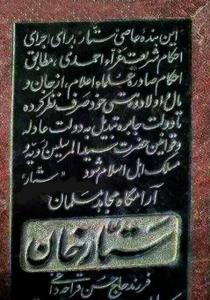 این بنده عاصی ستّار برای اجرای
احکام شریعت غرّاء احمدی، مطابق
احکام صادره علماء اعلام، از جان و
مال و اولاد و هستی خود صرف نظر کرده
تا دولت جابره تبدیل به دولت عادله
و قوانین حضرت سید المرسلین رویه و
مسلک اهل اسلام شود "ستّار"
آرامگاه مجاهد مسلمان
ستّارخان
فرزند حاج حسن قراجه داغی